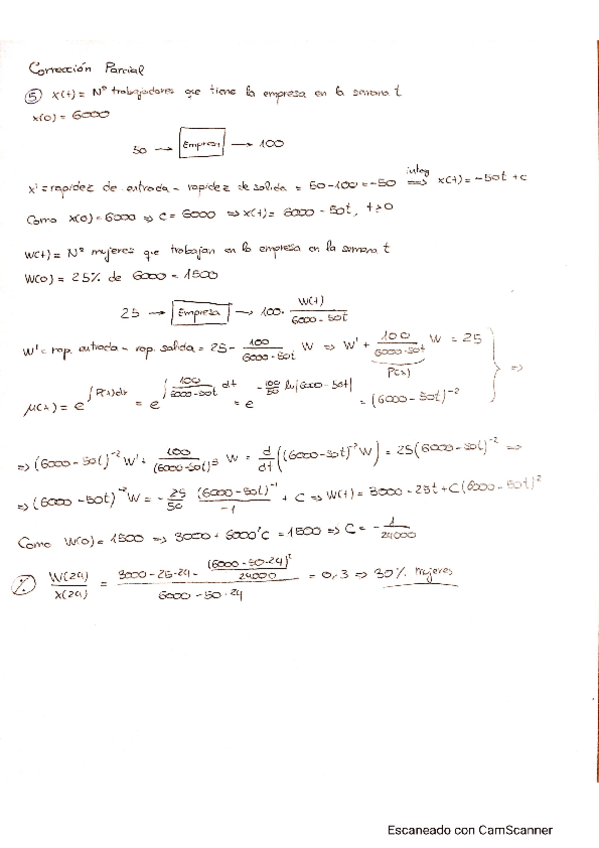 Corrección Parcial
⑤ x(t) = Nº trabajadores que tiene la empresa en la semana t
x(0) = 6000
50 → Empresa → 100
x' = rapidez de entrada - rapidez de salida = 50 - 100 = -50 integ ⟹ x(t) = -50t + c
Como x(0) = 6000 ⇒ c = 6000 ⇒ x(t) = 6000 - 50t, t ≥ 0
W(t) = Nº mujeres que trabajan en la empresa en la semana t
W(0) = 25% de 6000 = 1500
25 → Empresa → 100 · W(t) / (6000 - 50t)
W' = rap. entrada - rap. salida = 25 - 100/(6000 - 50t) W ⇒ W' + 100/(6000 - 50t) W = 25 ⇒
P(x)
μ(x) = e^∫P(x)dx = e^∫100/(6000-50t) dt = e^(-100/50 ln|6000-50t|) = (6000 - 50t)^-2
⇒ (6000 - 50t)^-2 W' + 100/(6000 - 50t)^3 W = d/dt ((6000 - 50t)^-2 W) = 25(6000 - 50t)^-2 ⇒
⇒ (6000 - 50t)^-2 W = - 25/50 (6000 - 50t)^-1/-1 + C ⇒ W(t) = 3000 - 25t + C(6000 - 50t)^2
Como W(0) = 1500 ⇒ 3000 + 6000^2 C = 1500 ⇒ C = - 1/24000
W(24)/x(24) = (3000 - 25·24 - (6000 - 50·24)^2/24000) / (6000 - 50·24) = 0,3 ⇒ 30% mujeres
Escaneado con CamScanner